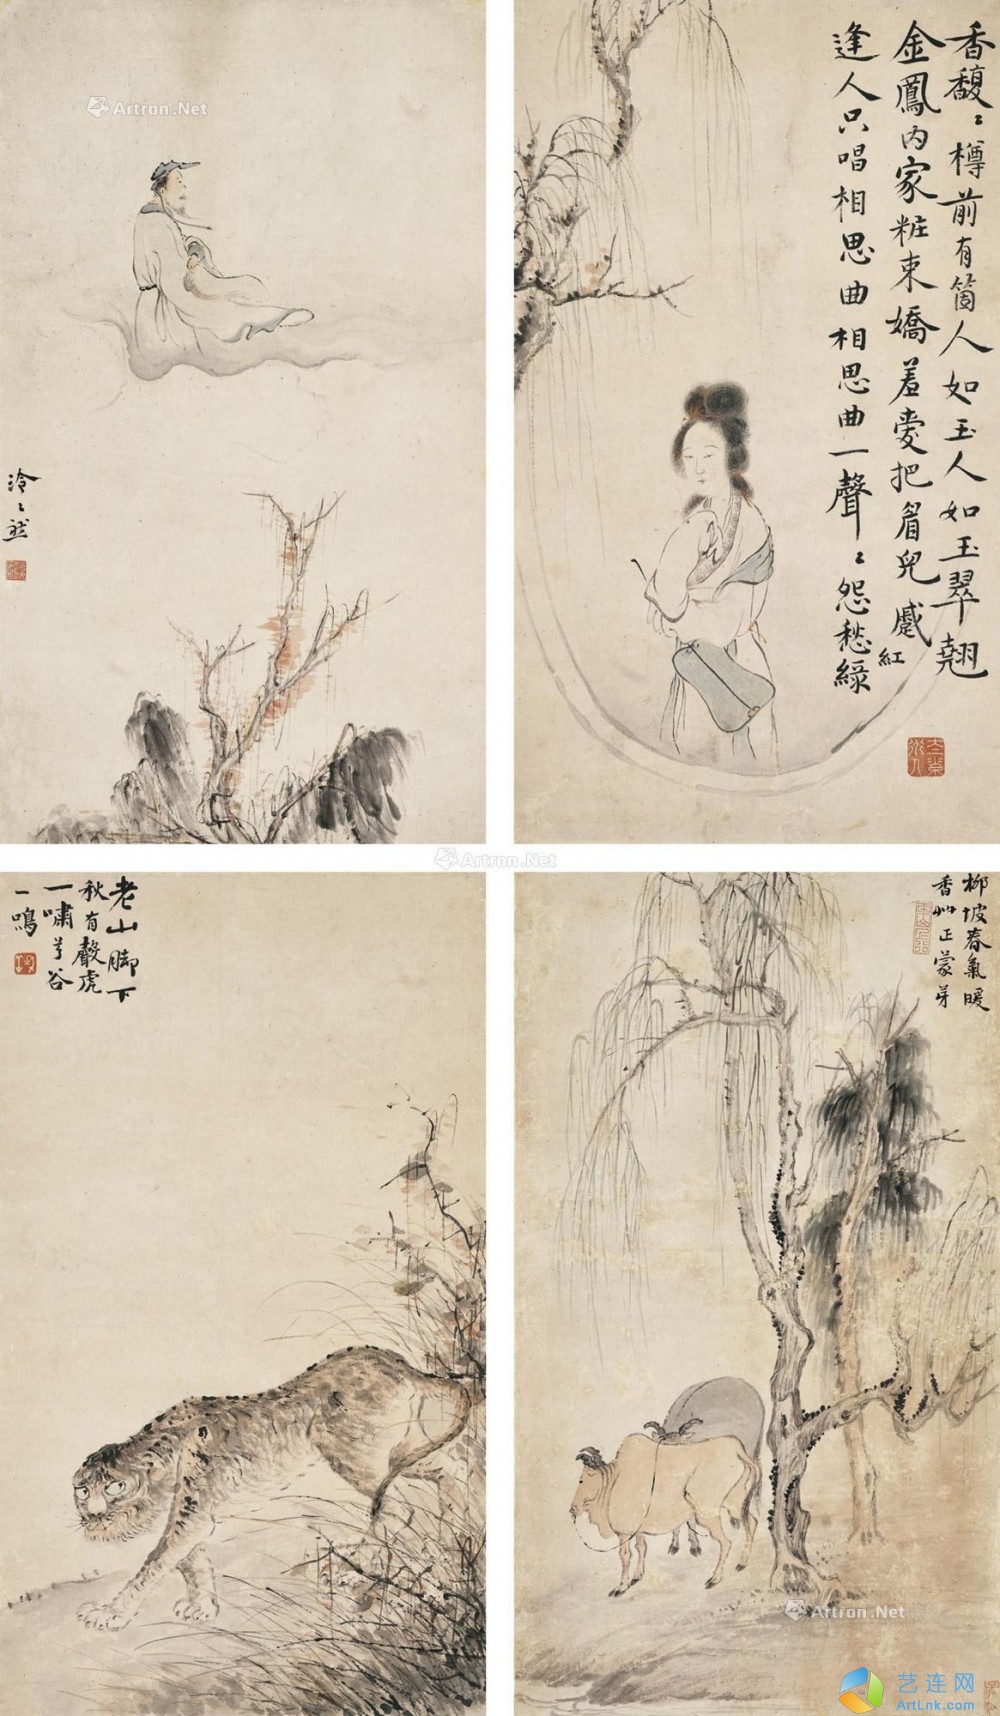 Artron.Net
泠〻然
香馥〻樽前有箇人如玉人如玉翠翹
金鳳内家粧束嬌羞愛把眉兒蹙
逢人只唱相思曲相思曲一聲〻怨愁綠
紅
Artron.Net
老山脚下
秋有聲虎
一嘯兮谷
一鳴
柳坡春氣暖
香艸正蒙芽
Artron.Net
艺连网
ArtLnk.com